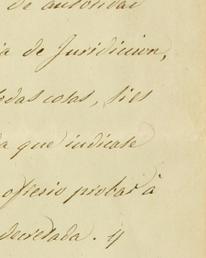 de autoridad
ia de Juridicion,
edas cosas, si es
la que indicase
oficio probar à
decretada. y